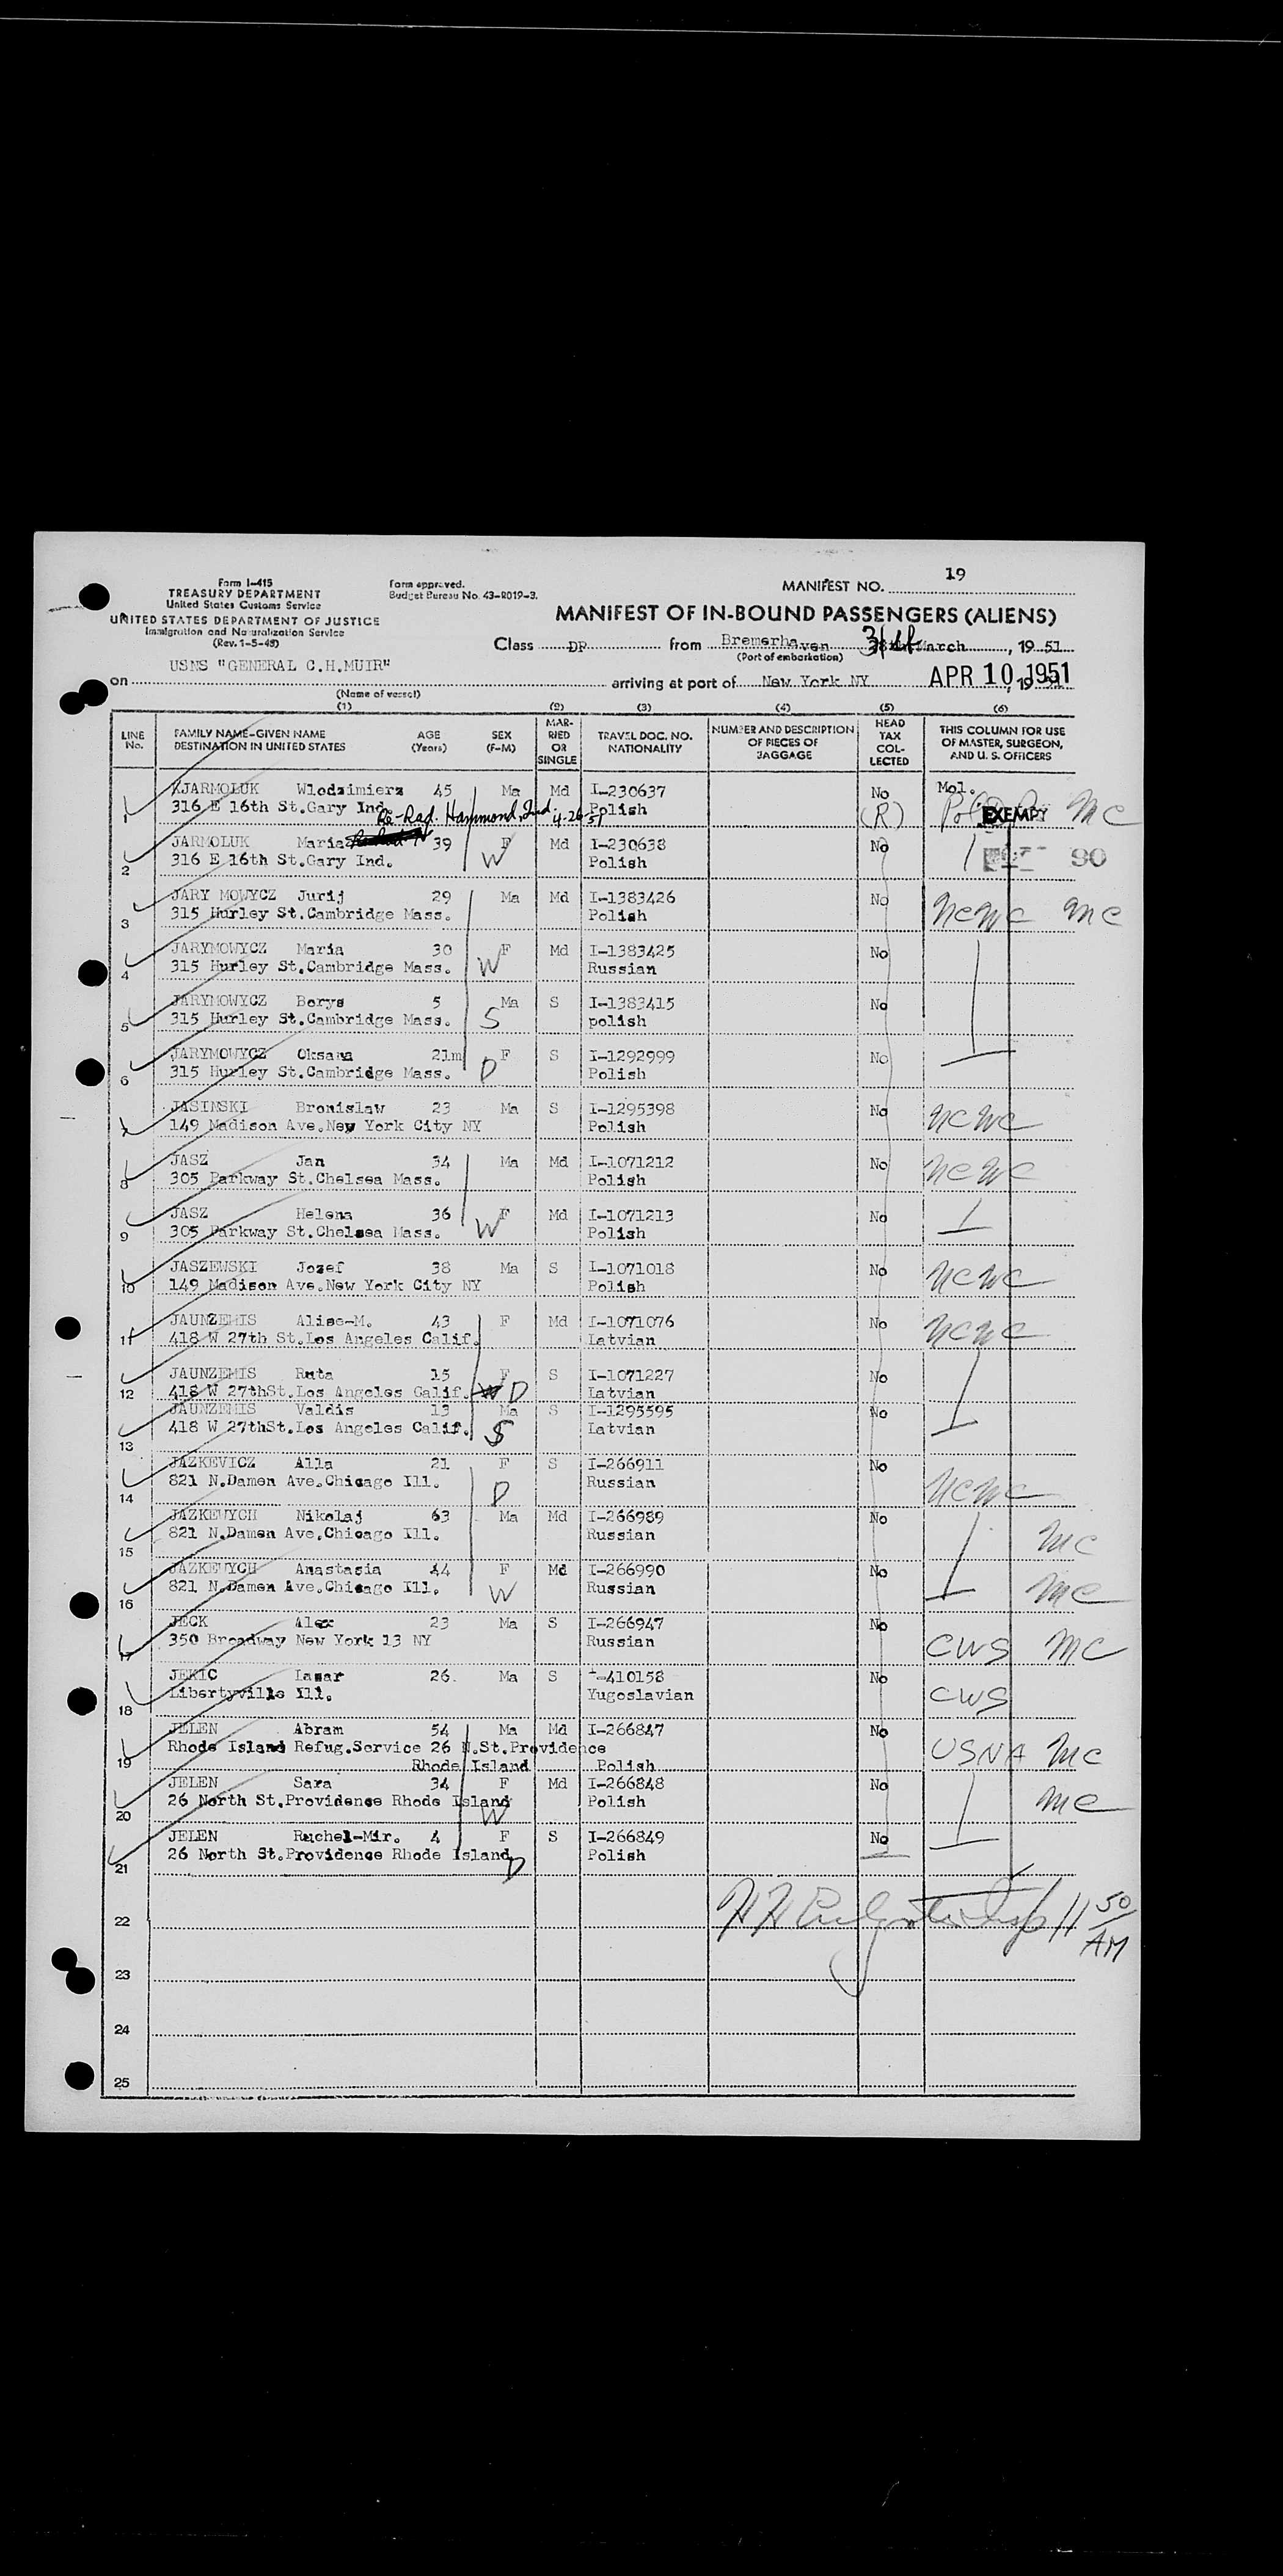 Form I-415
TREASURY DEPARTMENT
United States Customs Service
UNITED STATES DEPARTMENT OF JUSTICE
Immigration and Naturalization Service
(Rev. 1-5-49)
Form approved.
Budget Bureau No. 43-R019-3.
MANIFEST NO. 19
MANIFEST OF IN-BOUND PASSENGERS (ALIENS)
Class DP from Bremerhaven 31st March, 1951
(Port of embarkation)
on USNS "GENERAL C.H.MUIR" arriving at port of New York NY APR 10 1951
(Name of vessel)
(1) (2) (3) (4) (5) (6)
LINE No. FAMILY NAME-GIVEN NAME DESTINATION IN UNITED STATES AGE (Years) SEX (F-M) MARRIED OR SINGLE TRAVEL DOC. NO. NATIONALITY NUMBER AND DESCRIPTION OF PIECES OF BAGGAGE HEAD TAX COLLECTED THIS COLUMN FOR USE OF MASTER, SURGEON, AND U. S. OFFICERS
1 JARMOLUK Wlodzimierz 45 Ma Md I-230637 No Mol.
316 E 16th St.Gary Ind. Polish (R) EXEMPT MC
Re-Rad. Hammond, Ind. 4-26-51
2 JARMOLUK Maria 39 F Md I-230638 No
316 E 16th St.Gary Ind. W Polish 90
3 JARY MOWYCZ Jurij 29 Ma Md I-1383426 No
315 Hurley St.Cambridge Mass. Polish NCWC MC
4 JARYMOWYCZ Maria 30 F Md I-1383425 No
315 Hurley St.Cambridge Mass. W Russian
5 JARYMOWYCZ Borys 5 Ma S I-1383415 No
315 Hurley St.Cambridge Mass. S polish
6 JARYMOWYCZ Oksana 21m F S I-1292999 No
315 Hurley St.Cambridge Mass. D Polish
7 JASINSKI Bronislaw 23 Ma S I-1295398 No NCWC
149 Madison Ave.New York City NY Polish
8 JASZ Jan 34 Ma Md I-1071212 No NCWC
305 Parkway St.Chelsea Mass. Polish
9 JASZ Helena 36 F Md I-1071213 No
305 Parkway St.Chelsea Mass. W Polish
10 JASZEWSKI Jozef 38 Ma S I-1071018 No NCWC
149 Madison Ave.New York City NY Polish
11 JAUNZEMIS Alise-M. 43 F Md I-1071076 No NCWC
418 W 27th St.Los Angeles Calif. Latvian
12 JAUNZEMIS Ruta 15 F S I-1071227 No
418 W 27thSt.Los Angeles Calif. D Latvian
13 JAUNZEMIS Valdis 13 Ma S I-1295595 No
418 W 27thSt.Los Angeles Calif. S Latvian
14 JAZKEVICZ Alla 21 F S I-266911 No
821 N.Damen Ave.Chicago Ill. D Russian NCWC
15 JAZKEWYCH Nikolaj 63 Ma Md I-266989 No
821 N.Damen Ave.Chicago Ill. Russian MC
16 JAZKEWYCH Anastasia 44 F Md I-266990 No
821 N.Damen Ave.Chicago Ill. W Russian MC
17 JECK Alex 23 Ma S I-266947 No
350 Broadway New York 13 NY Russian CWS MC
18 JEKIC Lazar 26 Ma S I-410158 No
Libertyville Ill. Yugoslavian CWS
19 JELEN Abram 54 Ma Md I-266847 No
Rhode Island Refug.Service 26 N.St.Providence USNA MC
Rhode Island Polish
20 JELEN Sara 34 F Md I-266848 No
26 North St.Providence Rhode Island W Polish MC
21 JELEN Ruchel-Mir. 4 F S I-266849 No
26 North St.Providence Rhode Island D Polish
22 11 50 AM
23
24
25